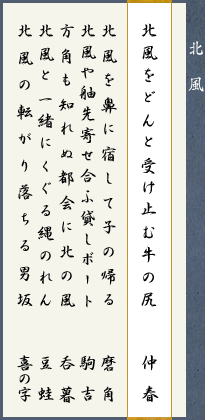 北風
北風をどんと受け止む牛の尻　仲春
北風を鼻に宿して子の帰る　磨角
北風や舳先寄せ合ふ貸しボート　駒吉
方角も知れぬ都会に北の風　呑暮
北風と一緒にくぐる縄のれん　豆蛙
北風の転がり落ちる男坂　喜の字